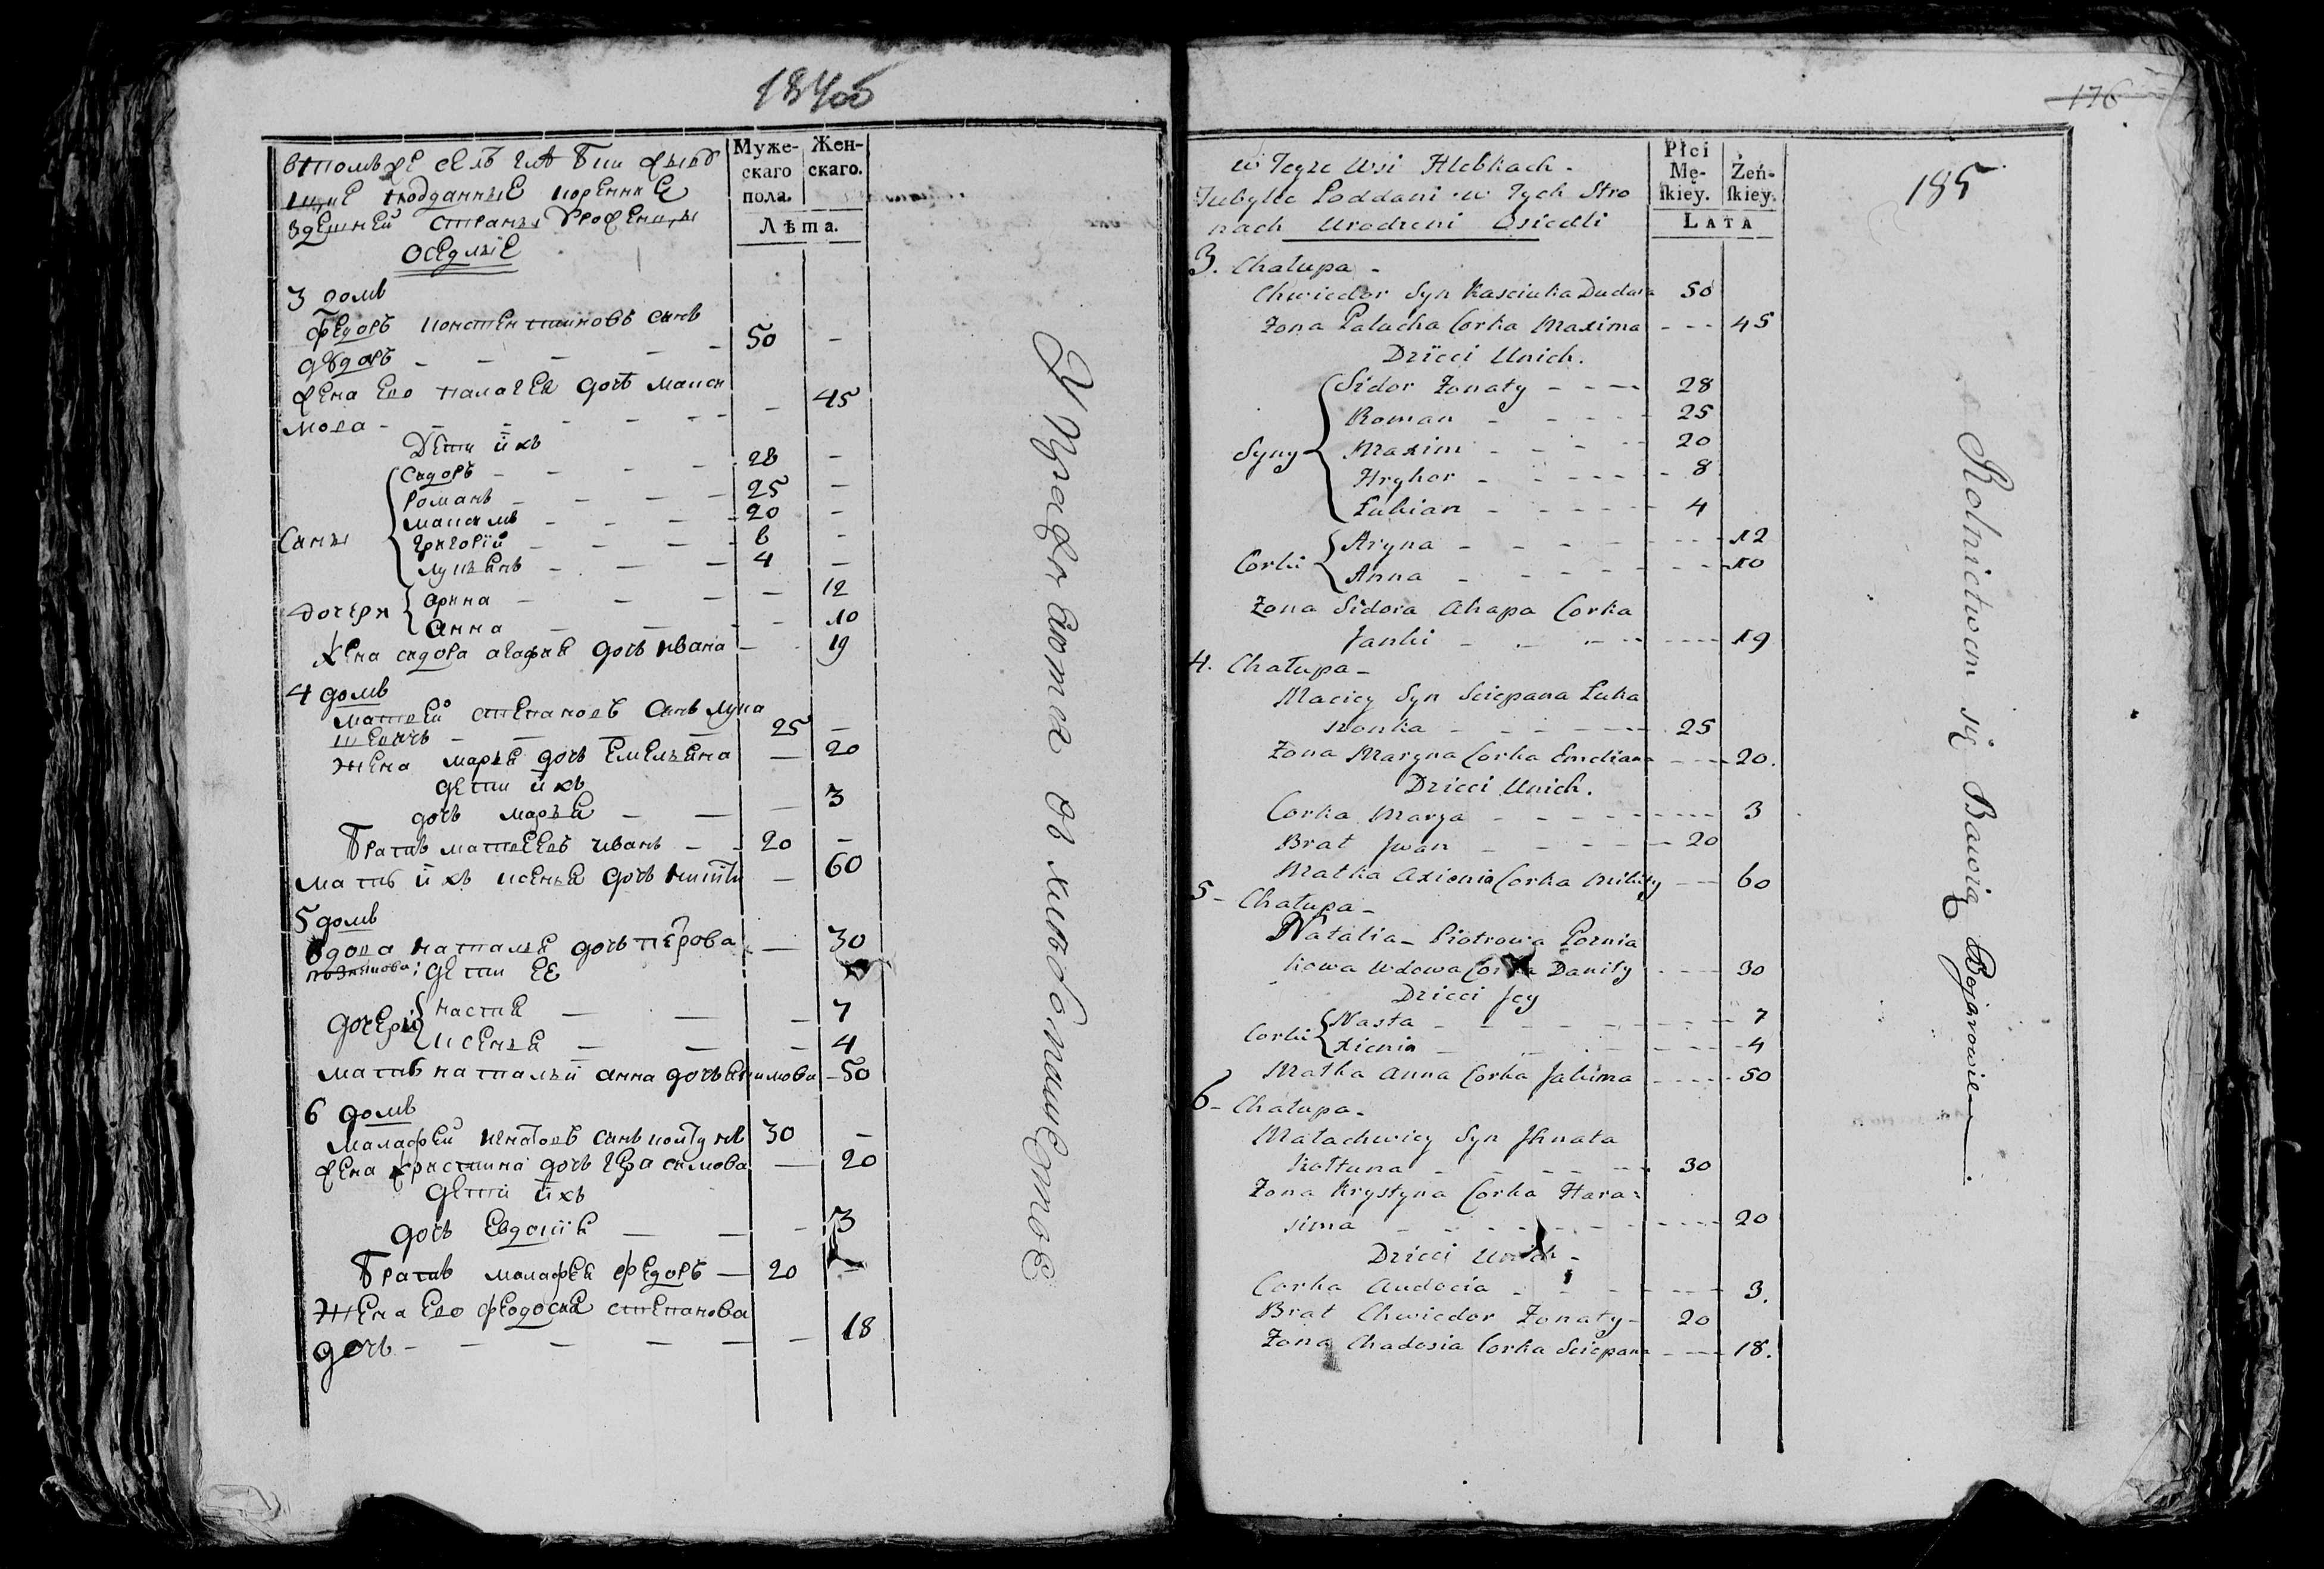 184об
Муже-
скаго
пола.
Жен-
скаго.
Лѣта.
втомъ же селѣ
подданные коренные
здешней страны урожденцы
оседлые
3 домъ
Федоръ Константиновъ сынъ
Дударъ - - - - - 50 -
жена его палагея дочь макси
мова - - - - - - - 45
Дети ихъ
Сыны
Сидоръ - - - - 28 -
Романъ - - - - 25 -
Максимъ - - - - 20 -
Григорій - - - - 8 -
Лукьянъ - - - 4 -
Дочери
Арина - - - - 12
Анна - - - - 10
Жена сидора агафия дочь ивана - 19
4 домъ
Матвей степановъ сынъ Лука
шевичъ - - - - 25 -
Жена марья дочь Емельяна - 20
дети ихъ
дочь марья - - - 3
Братъ матвеевъ иванъ - - 20 -
мать ихъ ксенья дочь никиты - 60
5 домъ
Вдова наталья дочь петрова - 30
позникова: дети ее
дочери
настя - - - 7
ксенья - - - 4
мать натальи анна дочь якимова - 50
6 домъ
Малафей игнатовъ сынъ колтунъ 30 -
жена христина дочь герасимова - 20
дети ихъ
дочь евдокия - - - 3
Братъ малафея федоръ - 20 -
Жена его феодосия степанова
дочь - - - - - - 18
Упражняются въ хлебопашестве
176
185
Płci
Mę-
skiey.
Żeń-
skiey.
LATA
w Teyze Wsi Hlebkach -
Tubylce Poddani w Tych Stro
nach Urodzeni Osiedli
3. Chałupa -
Chwiedor Syn Kasciuka Dudara 50
Zona Palucha Corka Maxima - - - 45
Dzieci Unich.
Syny
Sidor Zonaty - - - 28
Roman - - - - 25
Maxim - - - - 20
Hryhor - - - - - 8
Łukian - - - - - 4
Corki
Aryna - - - - - - - 12
Anna - - - - - - - 10
Zona Sidora Ahapa Corka
Janki - - - - - - - 19
4. Chałupa -
Maciey Syn Sciepana Łuka
szonka - - - - - - 25
Zona Maryna Corka Emeliana - - - 20.
Dzieci Unich.
Corka Marya - - - - - - - - 3
Brat Jwan - - - - - - 20
Matka Axienia Corka Mikity - - 60
5 - Chałupa -
Natalia - Piotrowa Poznia
kowa Wdowa Corka Daniły - - - 30
Dzieci Jey
Corki
Nasta - - - - - - - - 7
Xienia - - - - - - - 4
Matka Anna Corka Jakima - - - - - 50
6 - Chałupa -
Małachwiey Syn Jhnata
Kołtuna - - - - - - 30
Zona Krystyna Corka Hara:
sima - - - - - - - - - 20
Dzieci Unich -
Corka Audocia - - - - - - 3.
Brat Chwiedor Zonaty - 20
Zona Chadosia Corka Sciepana - - - 18.
Rolnictwem się Bawią